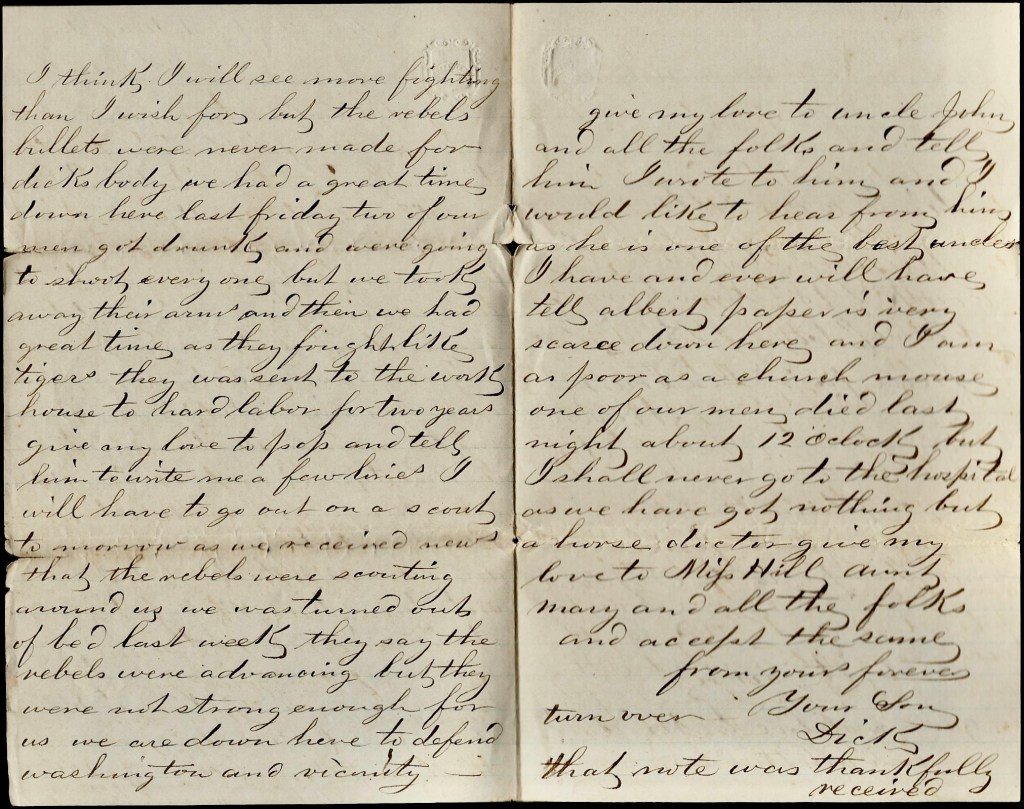 I think I will see more fighting
than I wish for but the rebels
bullets were never made for
dicks body we had a great time
down here last friday two of our
men got drunk and were going
to shoot every one but we took
away their arms and then we had
great time as they fought like
tigers they was sent to the work
house to hard labor for two years
give my love to pop and tell
him to write me a few lines I
will have to go out on a scout
to morrow as we received news
that the rebels were scouting
around us we was turned out
of bed last week they say the
rebels were advancing but they
were not strong enough for
us we are down here to defend
washington and vicinity —
give my love to uncle John
and all the folks and tell
him I wrote to him and I
would like to hear from him
as he is one of the best uncles
I have and ever will have
tell albert paper is very
scarce down here and I am
as poor as a church mouse
one of our men died last
night about 12 oclock but
I shall never go to the hospital
as we have got nothing but
a horse doctor give my
love to Miss Hill aunt
mary and all the folks
and accept the same
from yours forever
Your Son
turn over
Dick
that note was thankfully
received